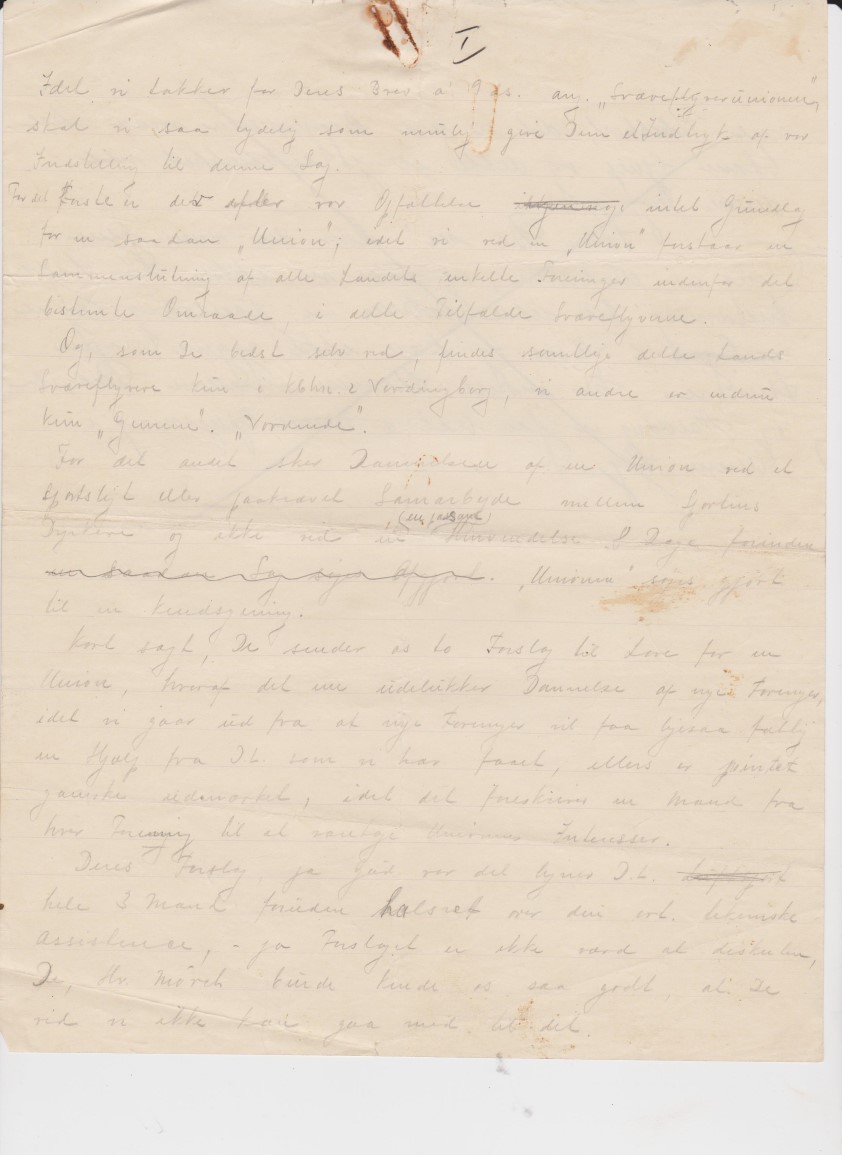 I
Idet vi takker for Deres Brev a 9 ds. ang. „Svæveflyverunionen"
skal vi saa tydelig som mulig give Dem et Indtryk af vor
Indstilling til denne Sag.
For det første er der efter vor Opfattelse intet Grundlag
for en saadan „Union"; idet vi ved en „Union" forstaar en
Sammenslutning af alle Landets enkelte Foreninger indenfor det
bestemte Omraade, i dette Tilfælde Svæveflyverne.
Og, som De bedst selv ved, findes samtlige dette Lands
Svæveflyvere kun i Kbhn. & Vordingborg, vi andre er endnu
kun „Gemene". „Vordende".
For det andet sker Dannelse af en Union ved et
sportsligt eller paakrævet Samarbejde mellem Sportens
Dyrkere og ikke ved en (en passant) Henvendelse 8 Dage forinden
en saadan Sag „Unionen" gjort
til en Kendsgerning.
Kort sagt, De sender os to Forslag til Love for en
Union, hvoraf det ene udelukker Dannelse af nye Foreninger,
idet vi gaar ud fra at nye Foreninger vil faa ligesaa fattig
en Hjælp fra D.L. som vi har faaet, ellers er
ganske udmærket, idet det foreskriver en Mand fra
hver Forening til at varetage Unionens Interesser.
Deres Forslag, ja Gud var det ligner D.L.
hele 3 Mand foruden over den evt. tekniske
Assistence, - ja Forslaget er ikke værd at diskutere,
De, Hr. Mørch burde kende os saa godt, at De
ved vi ikke kan gaa med til det.